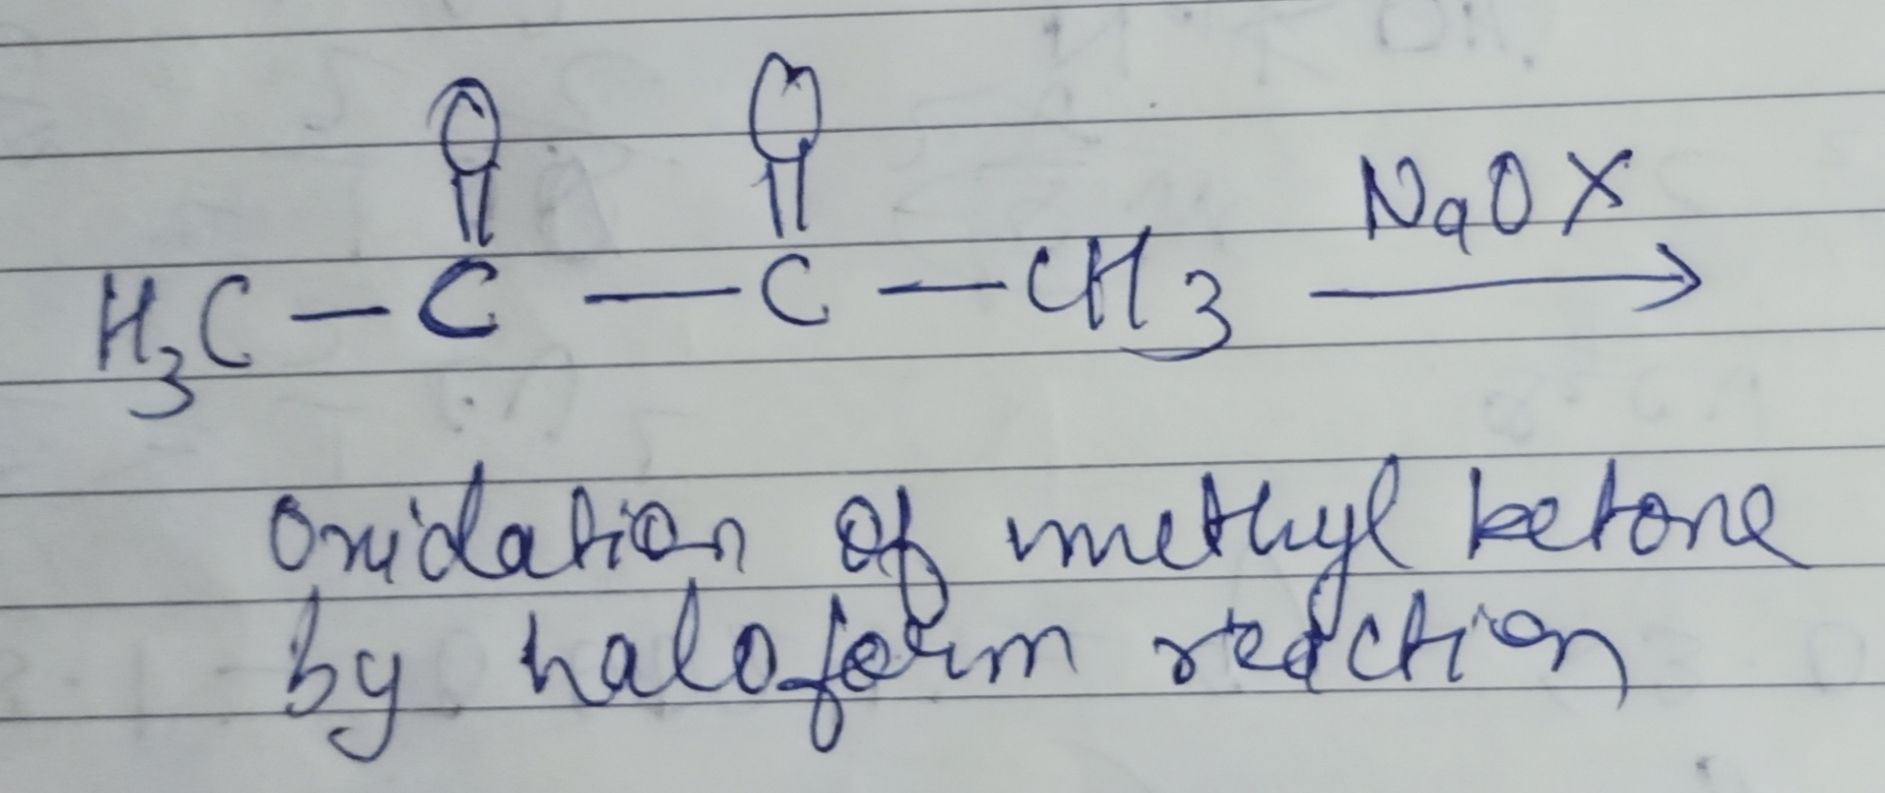 O O
H₃C – C — C – CH₃ NaOX →
Oxidation of methyl ketone
by haloform reaction